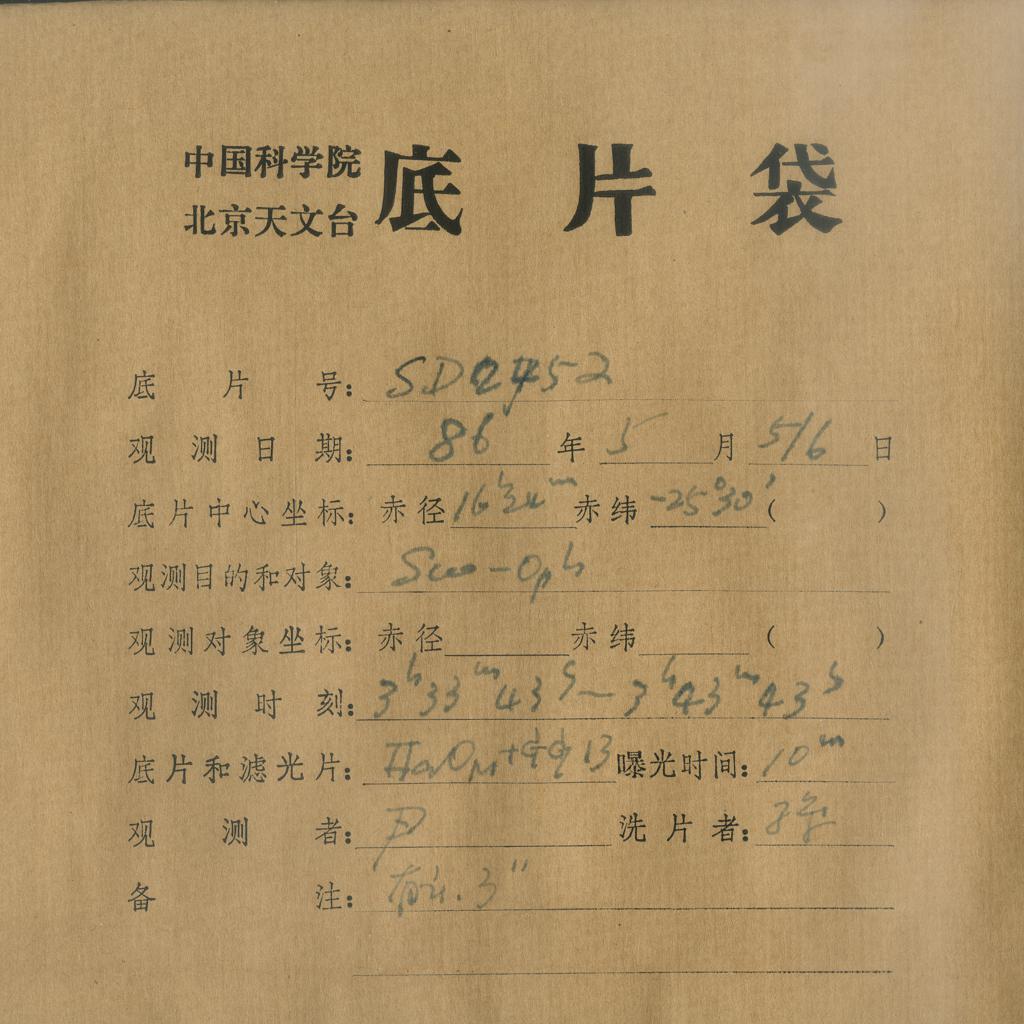 中国科学院
北京天文台
底片袋
底片号: SD2452
观测日期: 86年5月5/6日
底片中心坐标: 赤径16h24m 赤纬-25°30′( )
观测目的和对象: Sco-Oph
观测对象坐标: 赤径 赤纬 ( )
观测时刻: 3h33m43s~3h43m43s
底片和滤光片: 曝光时间: 10m
观测者: 尹 洗片者:
备注: 3″